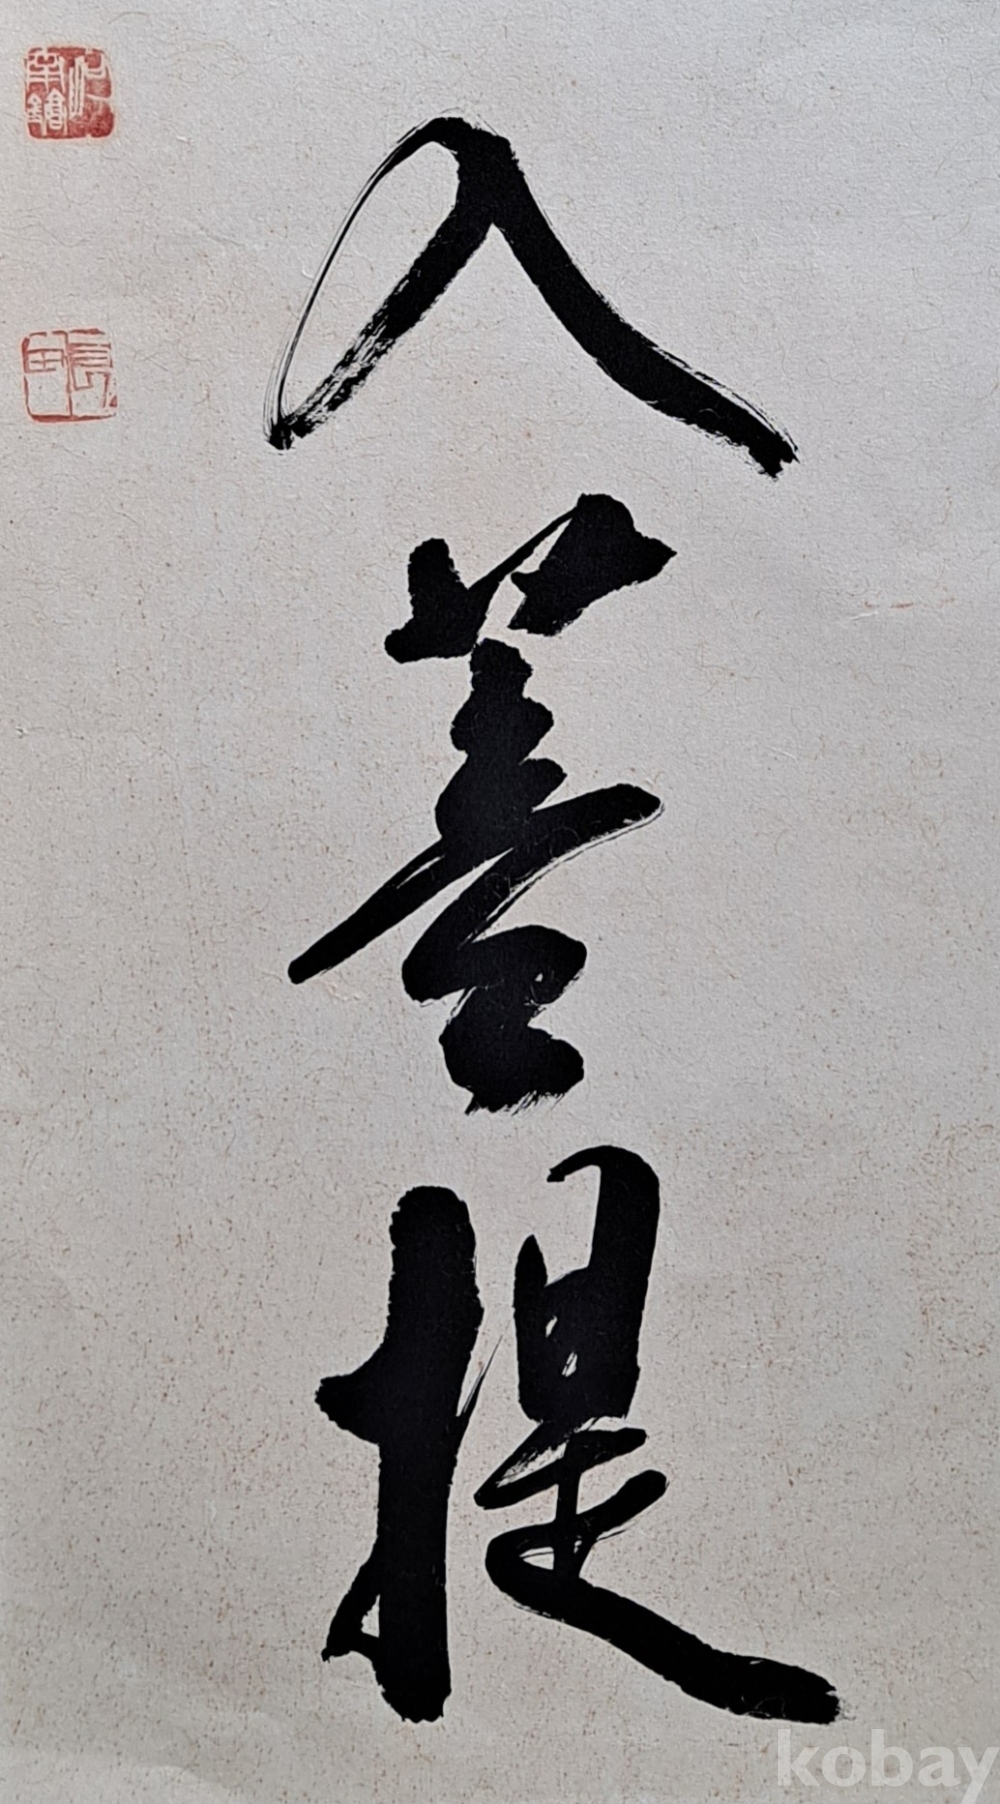 入菩提
kobay